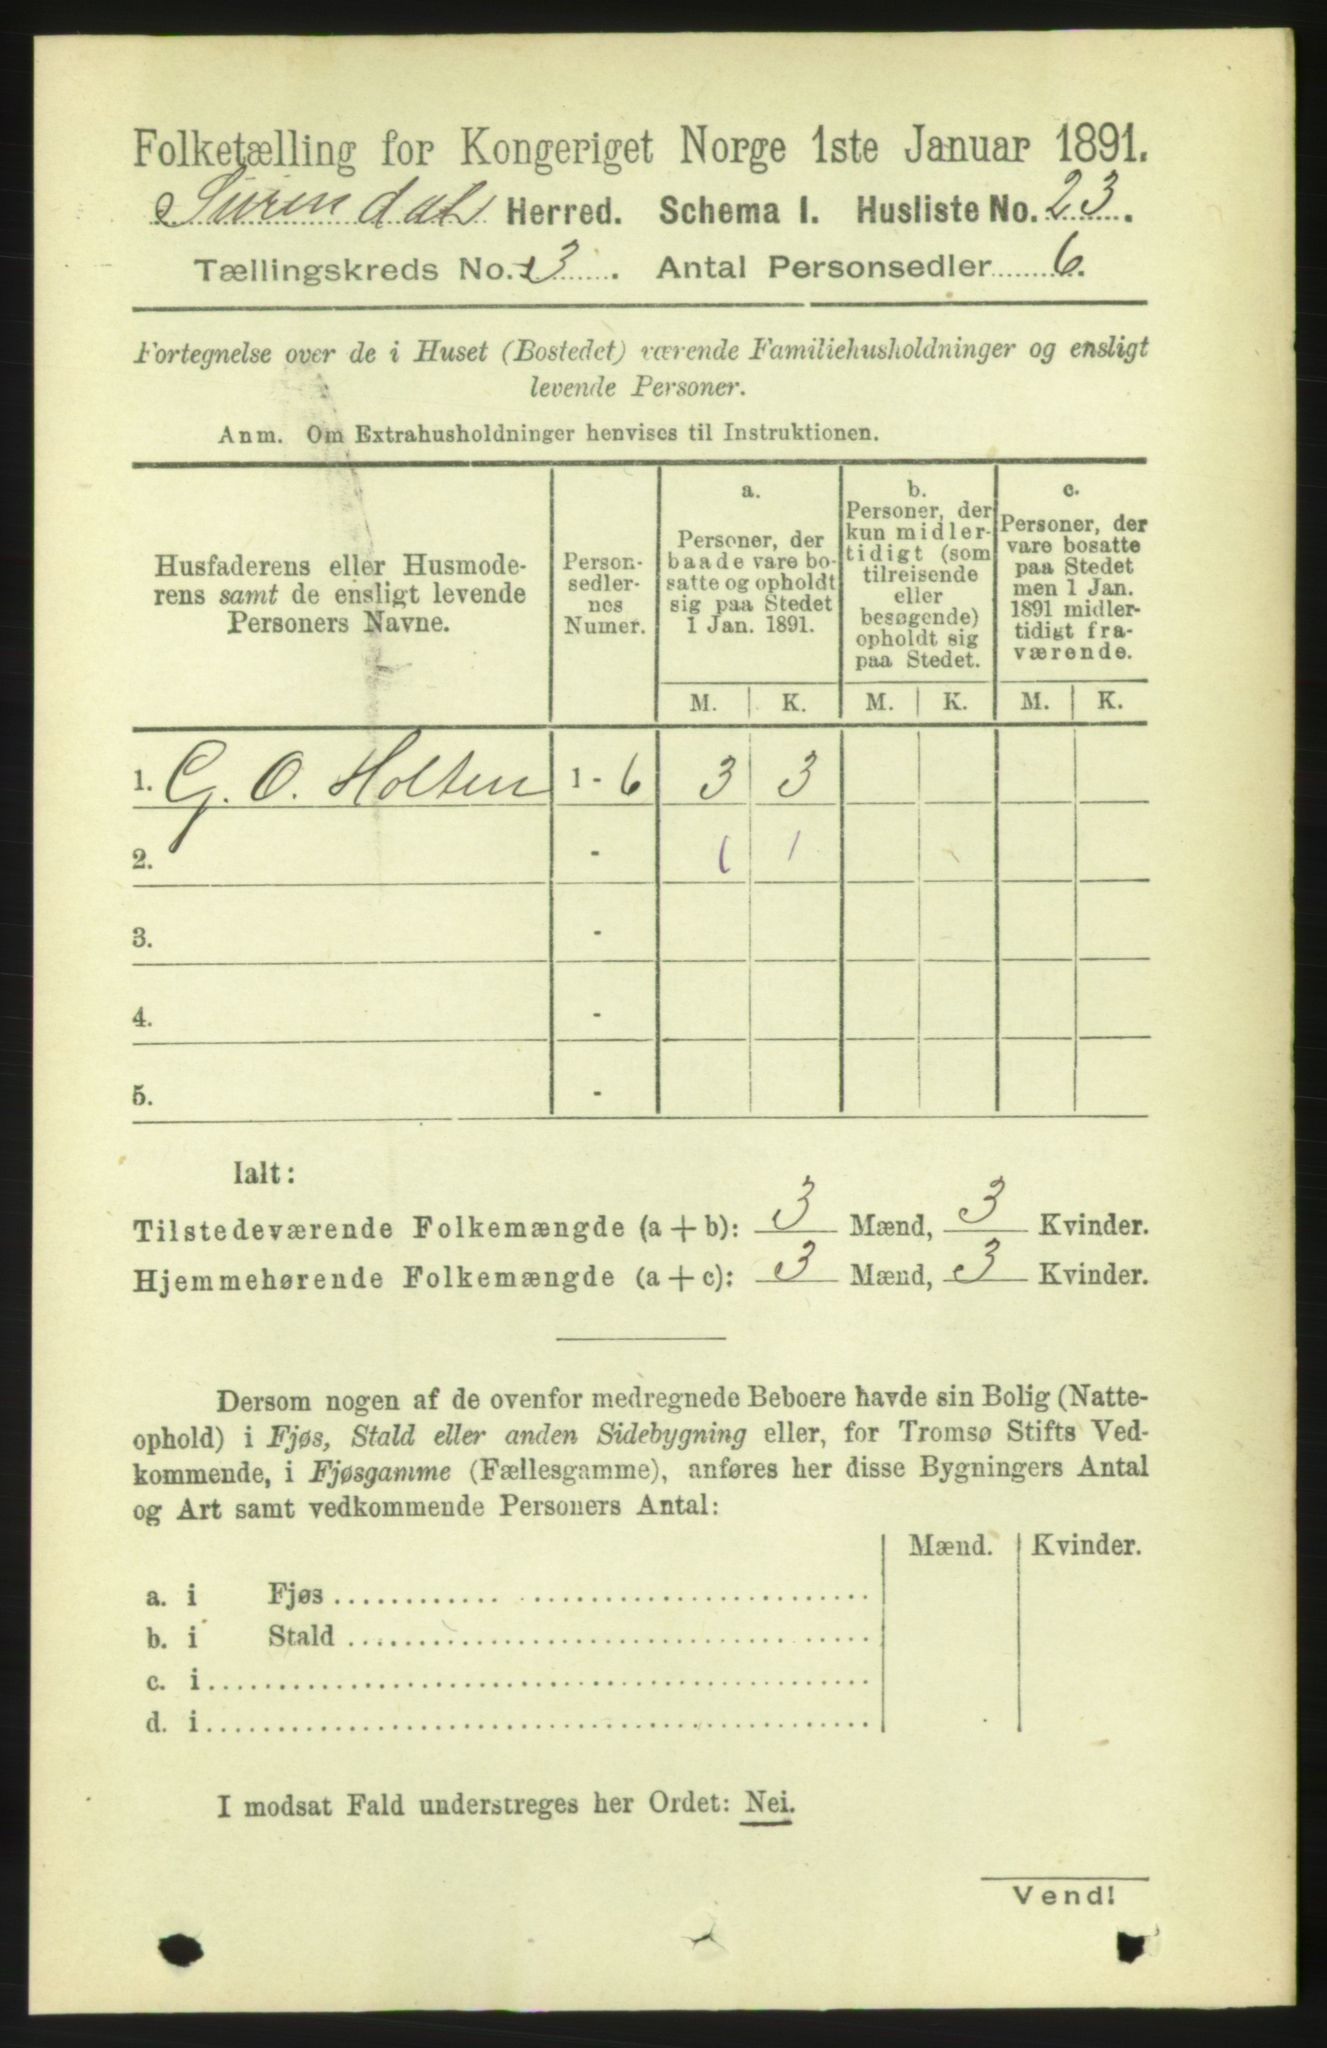 Folketælling for Kongeriget Norge 1ste Januar 1891.
Surendal Herred. Schema I. Husliste No. 23.
Tællingskreds No. 3. Antal Personsedler 6.
Fortegnelse over de i Huset (Bostedet) værende Familiehusholdninger og ensligt
levende Personer.
Anm. Om Extrahusholdninger henvises til Instruktionen.
Husfaderens eller Husmode-
rens samt de ensligt levende
Personers Navne.
Person-
sedler-
nes
Numer.
a.
Personer, der
baade vare bo-
satte og opholdt
sig paa Stedet
1 Jan. 1891.
b.
Personer, der
kun midler-
tidigt (som
tilreisende
eller
besøgende)
opholdt sig
paa Stedet.
c.
Personer, der
vare bosatte
paa Stedet
men 1 Jan.
1891 midler-
tidigt fra-
værende.
M. K. M. K. M. K.
1. G. O. Holten 1 - 6 3 3
2. - 1 1
3. -
4. -
5. -
Ialt:
Tilstedeværende Folkemængde (a + b): 3 Mænd, 3 Kvinder.
Hjemmehørende Folkemængde (a + c): 3 Mænd, 3 Kvinder.
Dersom nogen af de ovenfor medregnede Beboere havde sin Bolig (Natte-
ophold) i Fjøs, Stald eller anden Sidebygning eller, for Tromsø Stifts Ved-
kommende, i Fjøsgamme (Fællesgamme), anføres her disse Bygningers Antal
og Art samt vedkommende Personers Antal:
Mænd. Kvinder.
a. i Fjøs
b. i Stald
c. i
d. i
I modsat Fald understreges her Ordet: Nei.
Vend!